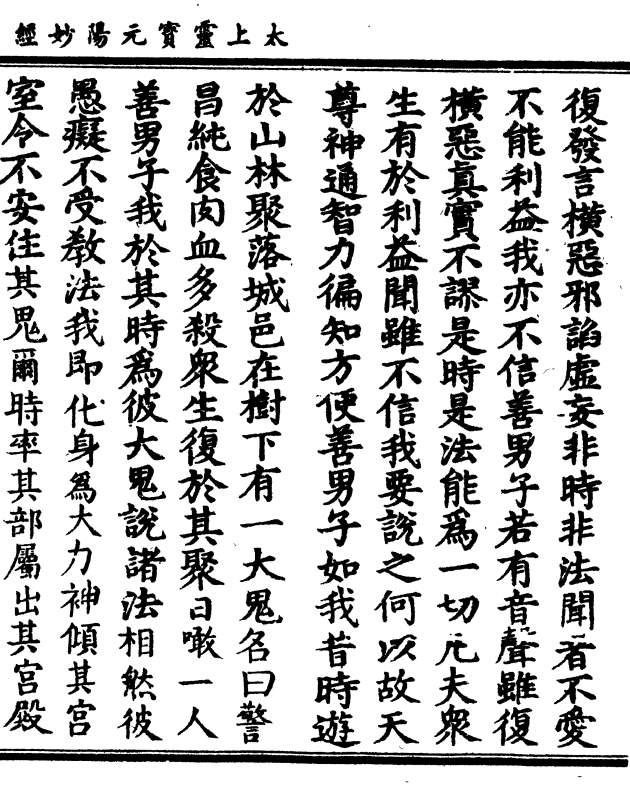 太上靈寶元陽妙經
復發言橫惡邪諂虛妄非時非法聞者不愛
不能利益我亦不信善男子若有音聲雖復
橫惡真實不謬是時是法能為一切凡夫衆
生有於利益聞雖不信我要說之何以故天
尊神通智力徧知方便善男子如我昔時遊
於山林聚落城邑在樹下有一大鬼名曰警
昌純食肉血多殺衆生復於其聚日噉一人
善男子我於其時為彼大鬼說諸法相然彼
愚癡不受教法我即化身為大力神傾其宮
室令不安住其鬼爾時率其部屬出其宮殿